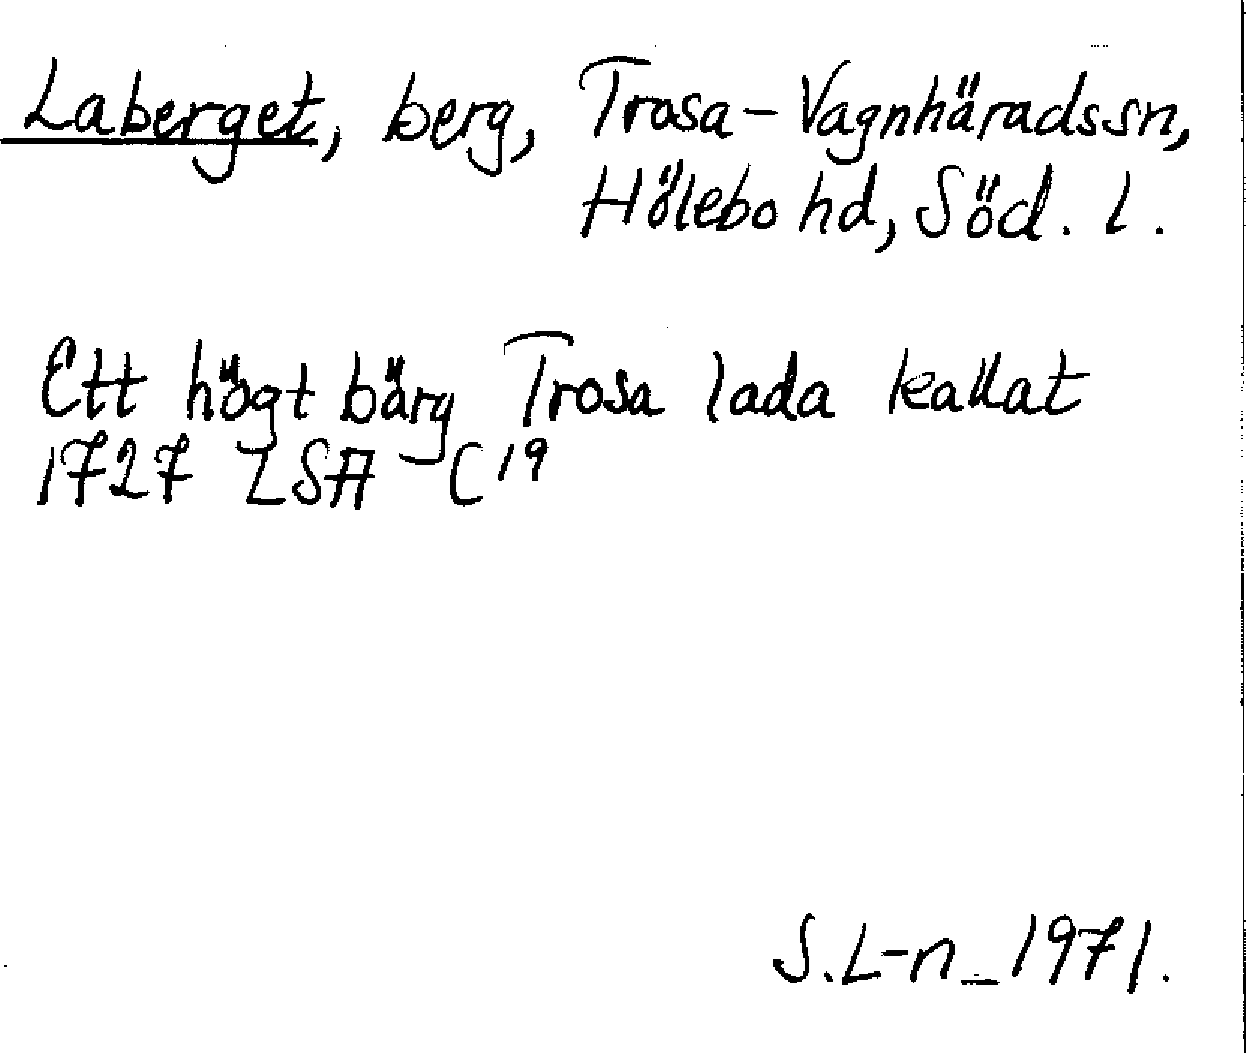 Laberget, berg, Trosa-Vagnhäradssn,
Hölebo hd, Söd. l.
Ett högt bärg Trosa lada kallat
1727 LSA C19
S.L-n_1971.